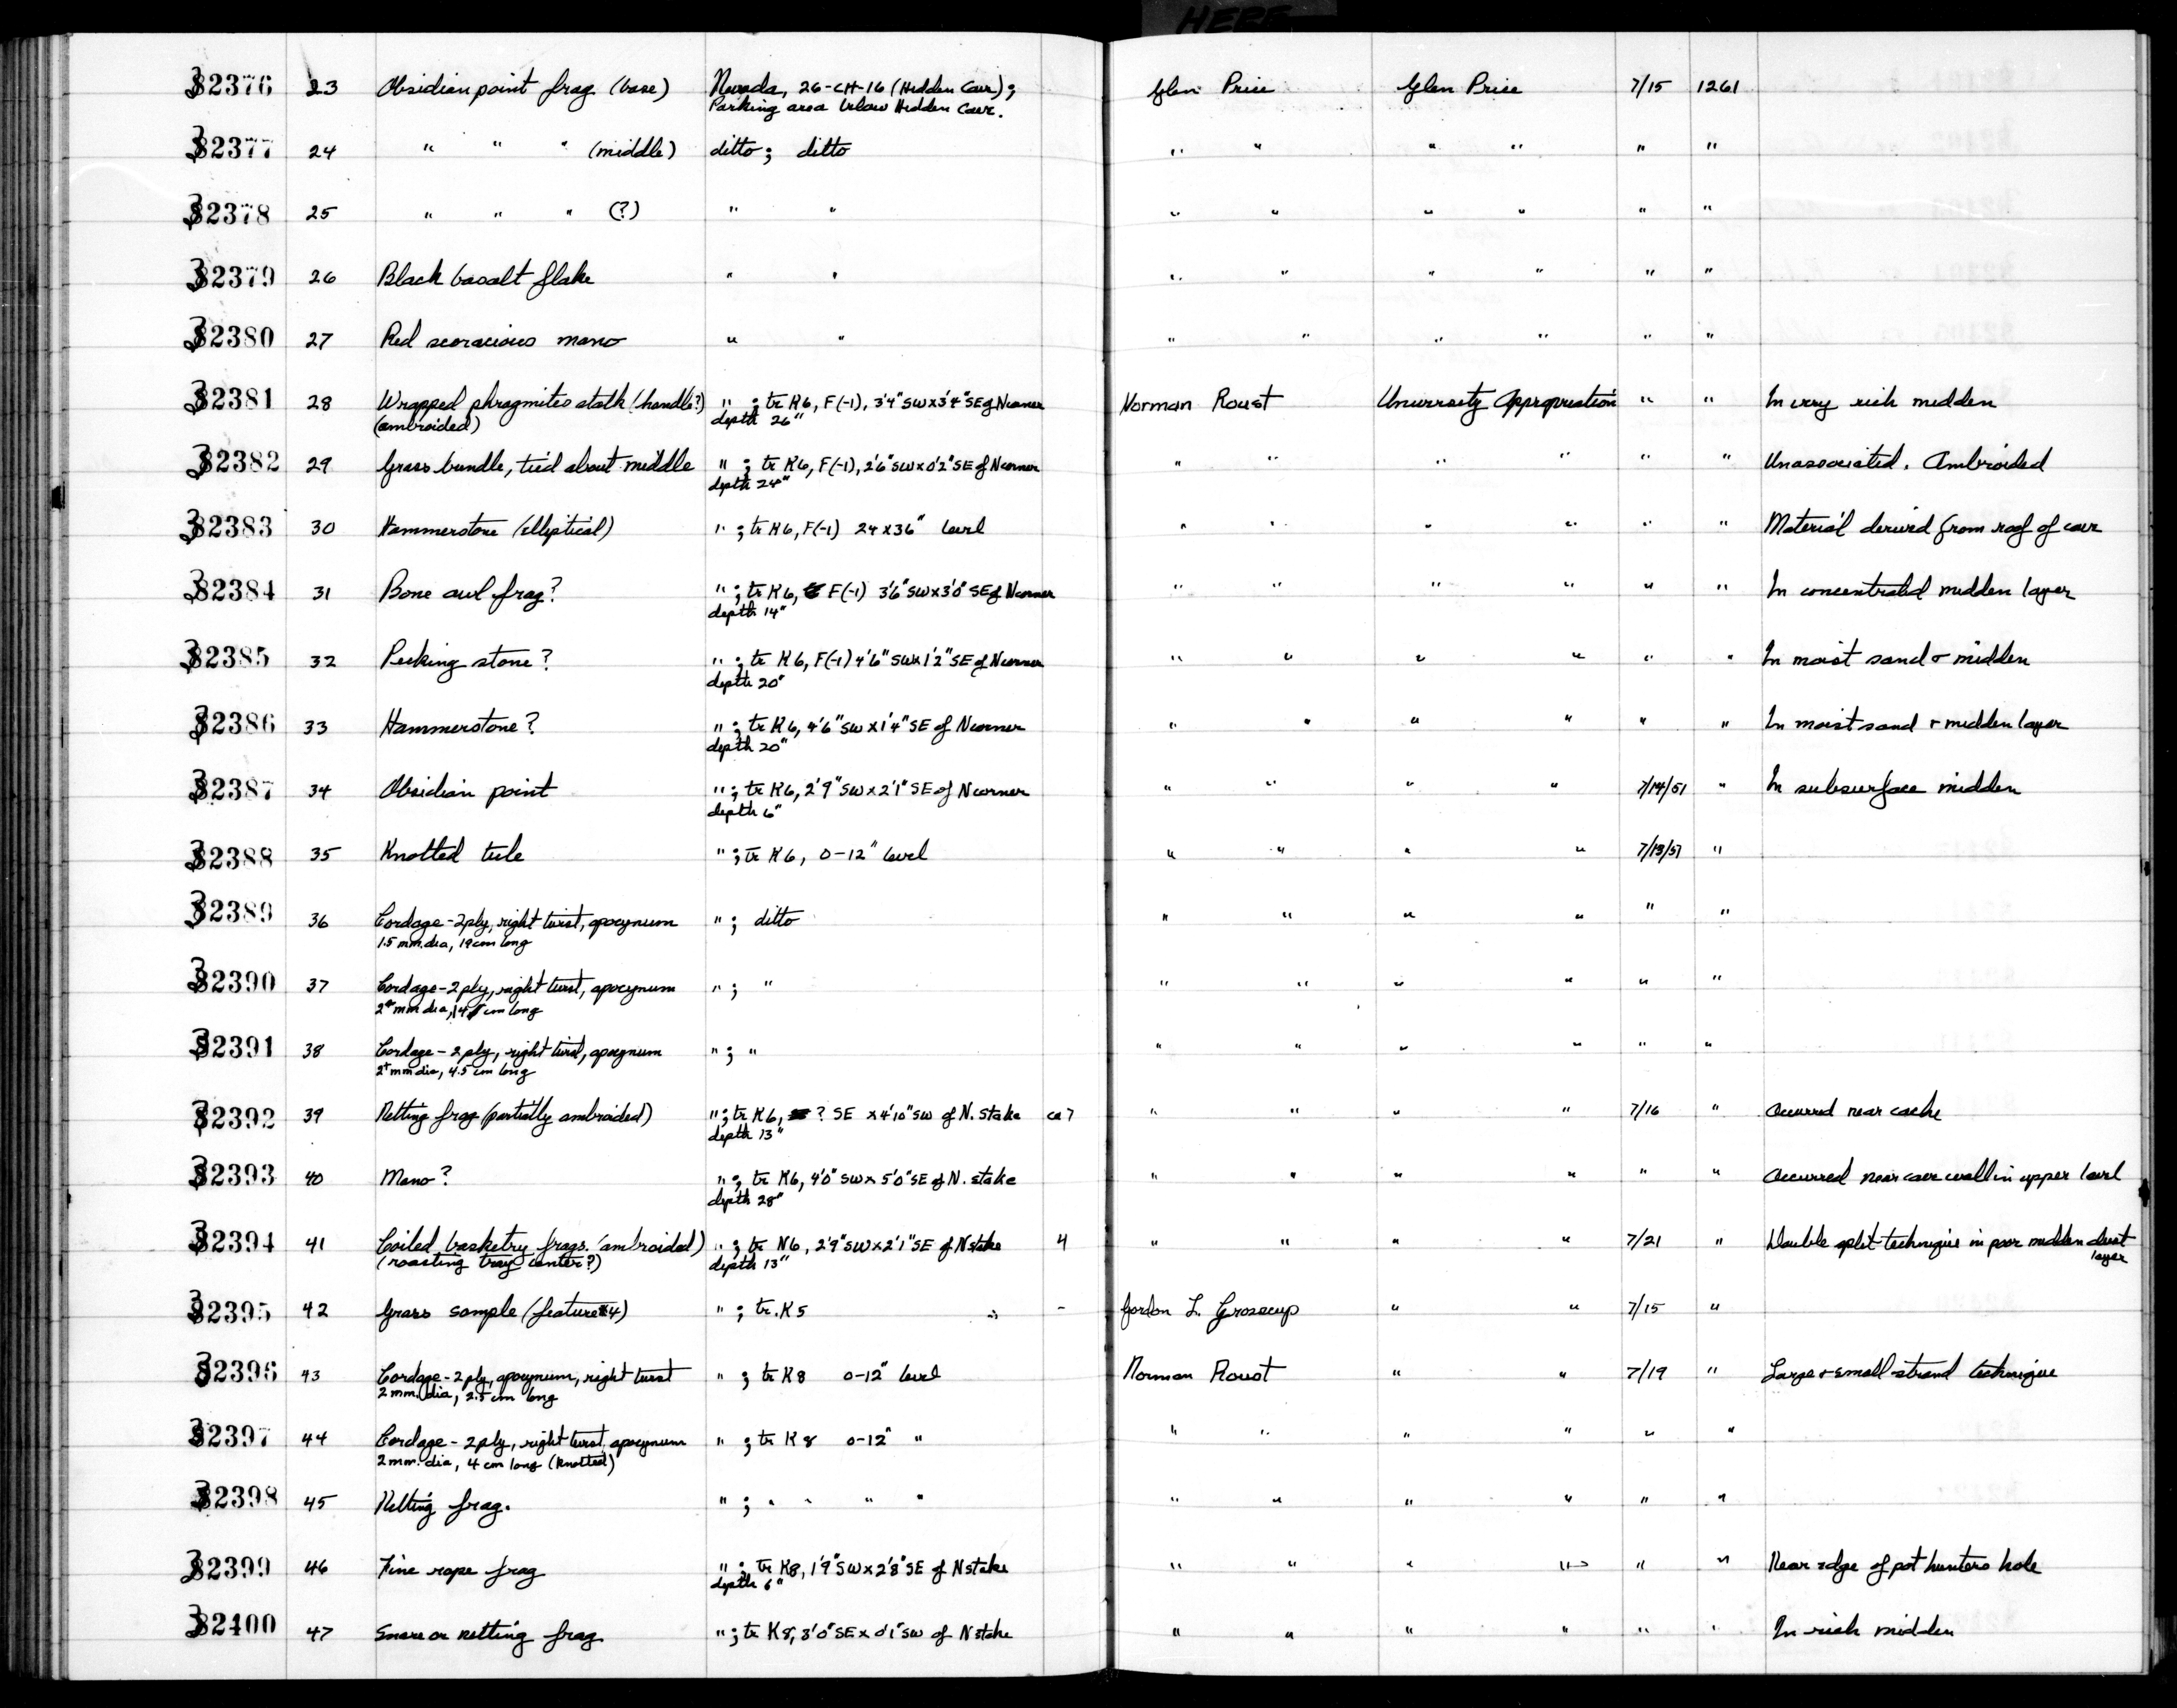 HERE
32376 23 Obsidian point frag (base) Nevada, 26-CH-16 (Hidden Cave); Glen Price Glen Price 7/15 1261
Parking area below Hidden Cave.
32377 24 " " " (middle) ditto; ditto " " " " " "
32378 25 " " " (?) " " " " " " " "
32379 26 Black basalt flake " " " " " " " "
32380 27 Red scoracious mano " " " " " " " "
32381 28 Wrapped phragmites stalk (handle?) " ; tr K6, F(-1), 3'4" SW x 3'4" SE of N corner Norman Roust University Appropriation " " In very rich midden
(ambroided) depth 26"
32382 29 Grass bundle, tied about middle " ; tr K6, F(-1), 2'6" SW x 0'2" SE of N corner " " " " " " Unassociated. Ambroided
depth 24"
32383 30 Hammerstone (elliptical) " ; tr K6, F(-1) 24 x 36" level " " " " " " Material derived from roof of cave
32384 31 Bone awl frag? " ; tr K6, F(-1) 3'6" SW x 3'0" SE of N corner " " " " " " In concentrated midden layer
depth 14"
32385 32 Pecking stone? " ; tr K6, F(-1) 4'6" SW x 1'2" SE of N corner " " " " " " In moist sand + midden
depth 20"
32386 33 Hammerstone? " ; tr K6, 4'6" SW x 1'4" SE of N corner " " " " " " In moist sand + midden layer
depth 20"
32387 34 Obsidian point " ; tr K6, 2'9" SW x 2'1" SE of N corner " " " " 7/14/51 " In subsurface midden
depth 6"
32388 35 Knotted tule " ; tr K6, 0-12" level " " " " 7/13/51 "
32389 36 Cordage - 2 ply, right twist, apocynum " ; ditto " " " " " "
1.5 mm. dia, 19 cm long
32390 37 Cordage - 2 ply, right twist, apocynum " ; " " " " " " "
2+ mm dia, 14 cm long
32391 38 Cordage - 2 ply, right twist, apocynum " ; " " " " " " "
2+ mm dia, 4.5 cm long
32392 39 Netting frag (partially ambroided) " ; tr K6, ? SE x 4'10" SW of N. stake ca 7 " " " " 7/16 " Occurred near cache
depth 13"
32393 40 Mano? " ; tr K6, 4'0" SW x 5'0" SE of N. stake " " " " " " Occurred near cave wall in upper level
depth 28"
32394 41 Coiled basketry frags. (ambroided) " ; tr N6, 2'9" SW x 2'1" SE of N stake 4 " " " " 7/21 " Double split technique in poor midden dust
(roasting tray center?) depth 13" layer
32395 42 Grass sample (feature #4) " ; tr. K5 - Gordon L. Grosscup " " 7/15 "
32396 43 Cordage - 2 ply, apocynum, right twist " ; tr K8 0-12" level Norman Roust " " 7/19 " Large + small strand technique
2 mm. dia, 2.5 cm long
32397 44 Cordage - 2 ply, right twist, apocynum " ; tr K8 0-12" " " " " " " "
2 mm. dia, 4 cm long (knotted)
32398 45 Netting frag. " ; " " " " " " " " " "
32399 46 Fine rope frag " ; tr K8, 1'9" SW x 2'8" SE of N stake " " " " " " Near edge of pot hunters hole
depth 6"
32400 47 Snare or netting frag " ; tr K8, 3'0" SE x 0'1" SW of N stake " " " " " " In rich midden